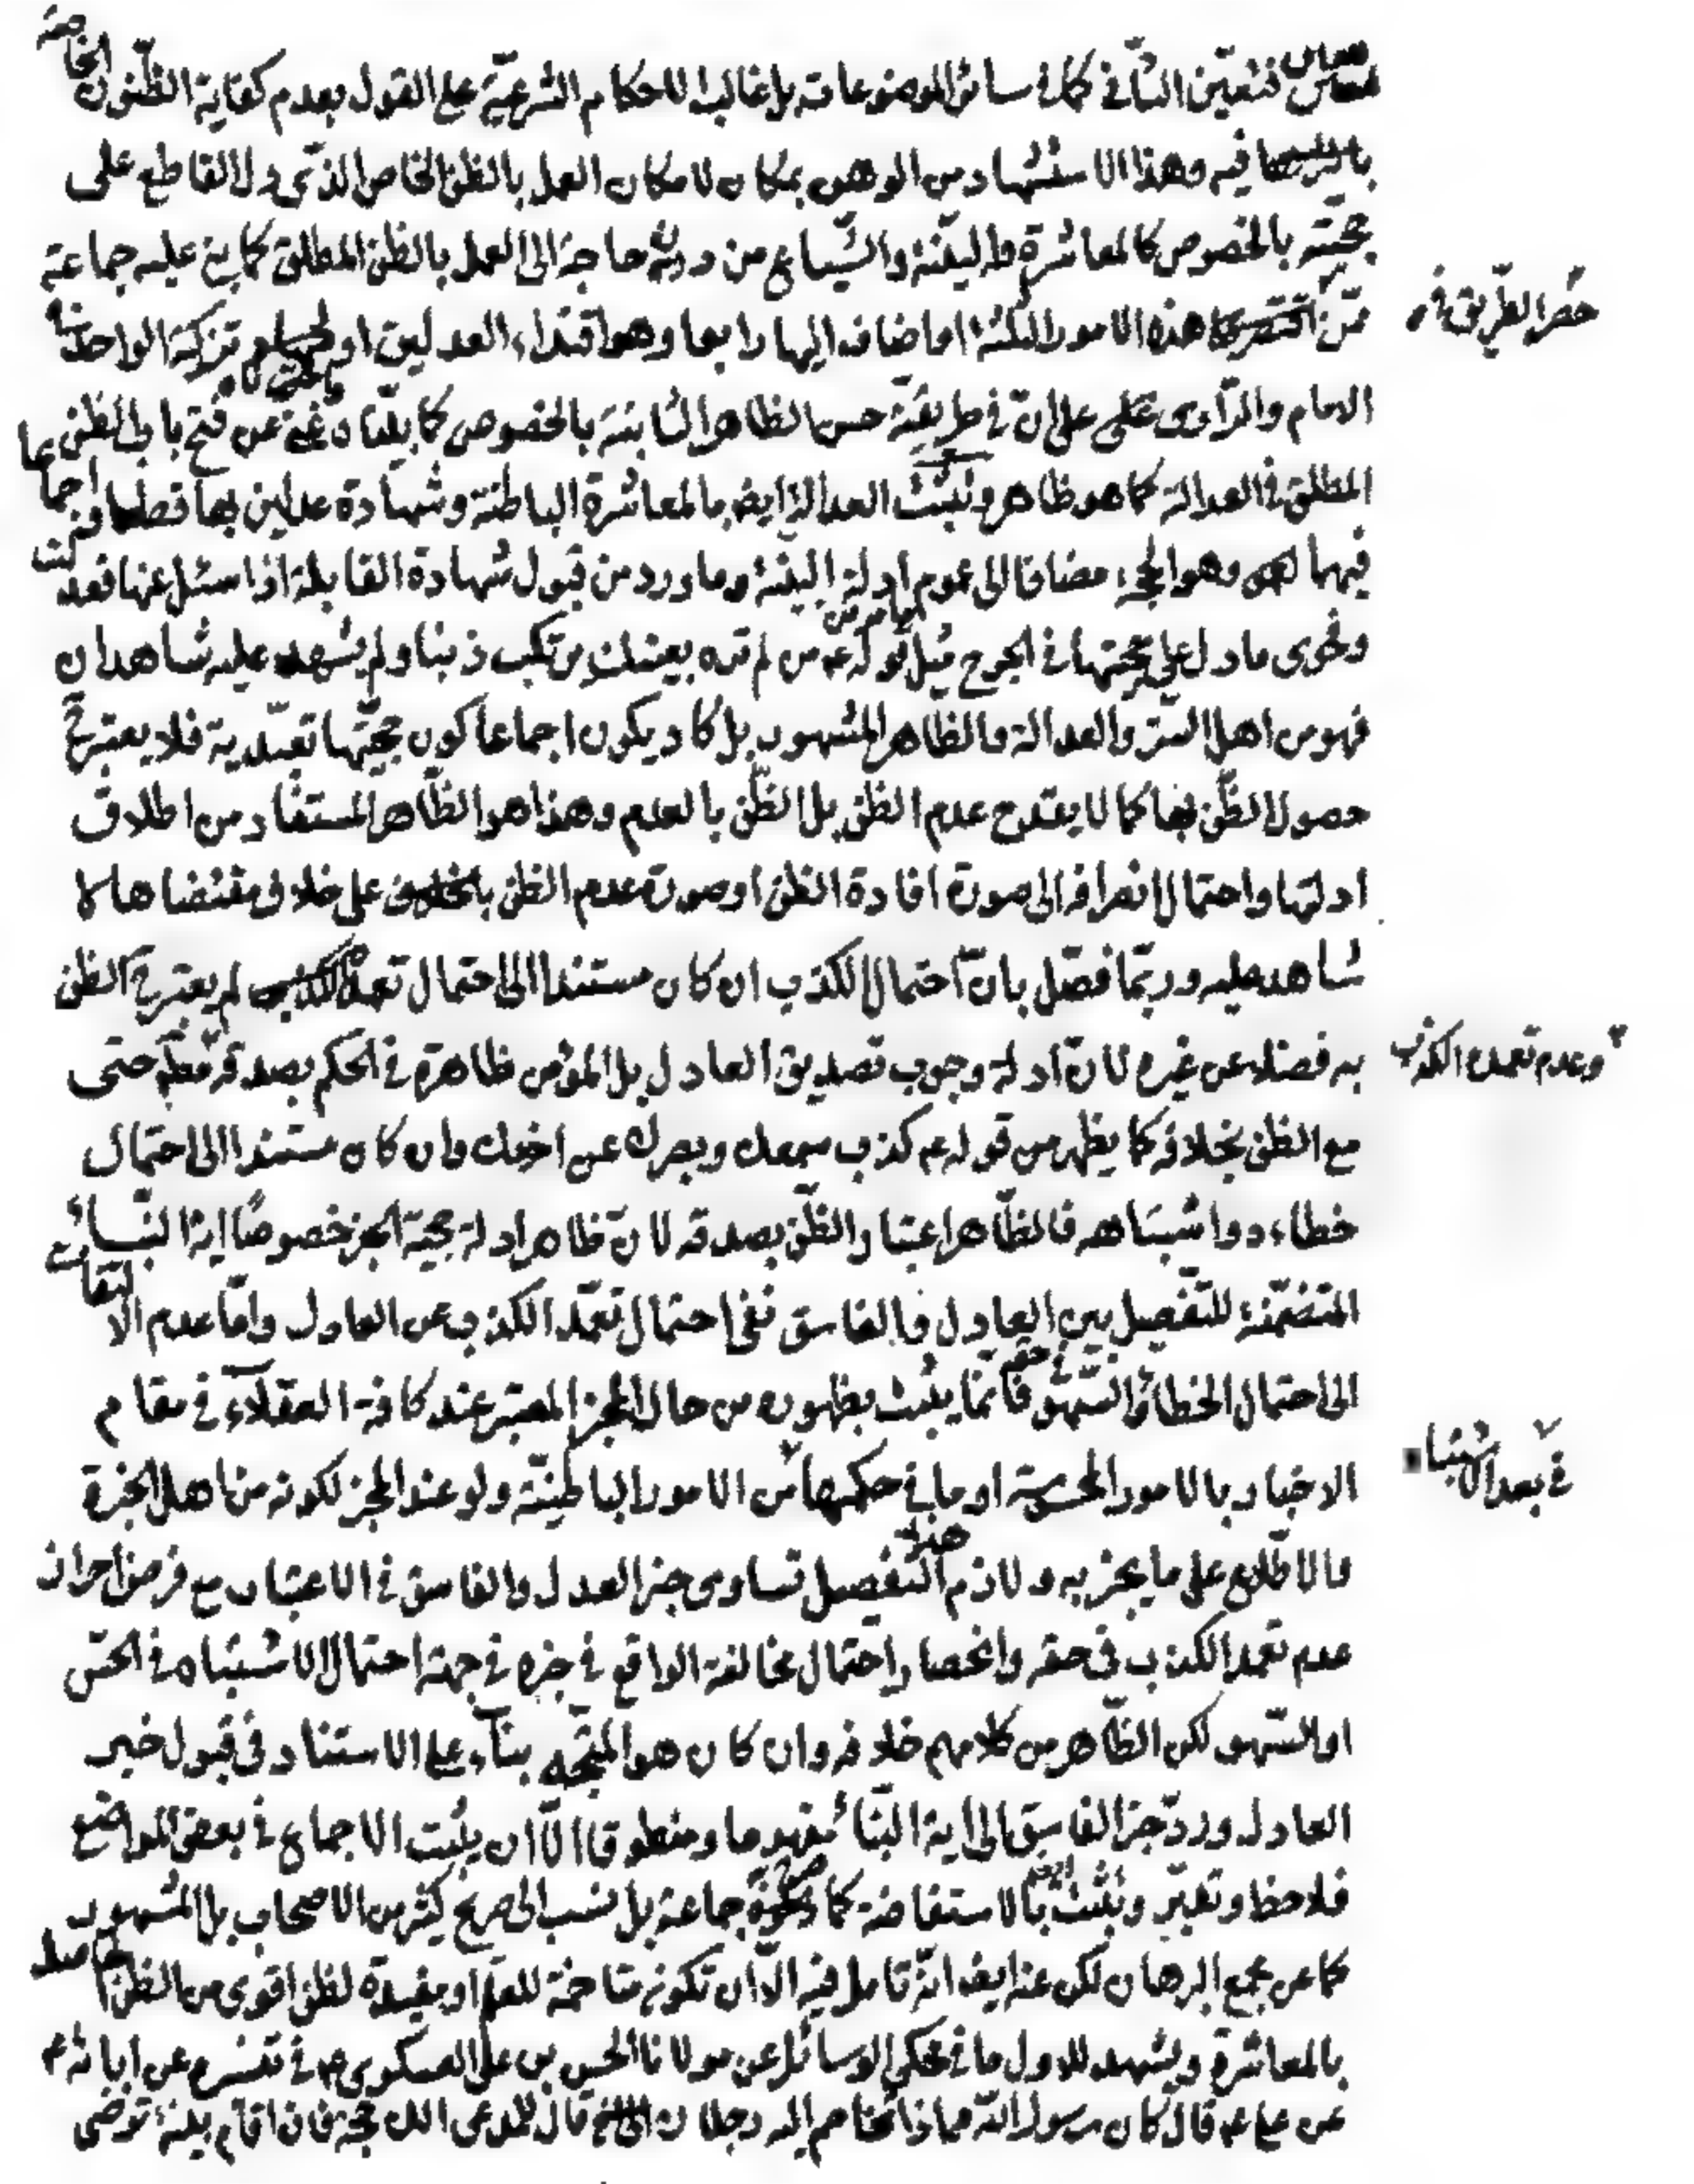 فتعيّن الثاني كما في سائر الموضوعات بل غالب الاحكام الشرعيّة على القول بعدم كفاية الظنون الخاصة
فيه وهذا الاستشهاد من الوهن بمكان لامكان العمل بالظن الخاص الذي دل القاطع على
حجيّته بالخصوص كالمعاشرة والبيّنة والشّياع من دون حاجة الى العمل بالظن المطلق كما عليه جماعة
ممّن هذه الامور الثلثة او اضاف اليها رابعا وهو اقتداء العدلين او تزكية الواحد
حصر الطريق في
الامام والمراوى على ان في طريقيّة حسن الظاهر الثابتة بالخصوص كما بيّناه غنية عن فتح باب الظن
المطلق في العدالة كما هو ظاهر وتثبت العدالة ايض بالمعاشرة الباطنة وشهادة عدلين بها قطعا اجماعا
فيهما وهو الحجة مضافا الى عموم ادلة البينة وما ورد من قبول شهادة القابلة اذا سئل عنها فعدلت
وفحوى ما دل على حجيتها في الجرح مثل قوله ع من لم تره بعينك يرتكب ذنبا ولم يشهد عليه شاهدان
فهو من اهل الستر والعدالة والظاهر المشهور بل كاد يكون اجماعا كون حجيّتها تعبّدية فلا يعتبر ح
حصول الظّن بها كما لا يقدح عدم الظن بل الظّن بالعدم وهذا هو الظّاهر المستفاد من اطلاق
ادلتها واحتمال انصرافه الى صورة افادة الظن او صورة عدم الظن على خلاف مقتضاها لا
شاهد عليه وربّما فصّل بانّ احتمال الكذب ان كان مستندا الى احتمال تعمّد لم يعتبر ح الظن
به فضلا عن غيره لانّ ادلة وجوب تصديق العادل بل المؤمن ظاهرة في الحكم بصدقه حتى
وعدم تعمده الكذب
مع الظن بخلافه كما يظهر من قوله ع كذب سمعك وبصرك عن اخيك وان كان مستندا الى احتمال
خطاءه واشتباهه فالظّاهر اعتبار الظّن بصدقه لانّ ظاهر ادلة حجية الخبر خصوصًا اية النبّاء
المتضمّنة للتّفصيل بين العادل والفاسق نفى احتمال تعمّد الكذب عن العادل وامّا عدم الالتفات
الى احتمال الخطاء والسّهو في حقه فانّما يثبت بظهوره من حال المخبر المعتبر عند كافة العقلاء في مقام
الاخبار بالامور الحسية او ما في حكمها من الامور الباطنيّة ولو عند المخبر لكونه من اهل الخبرة
في بعد الاشتباه
والاطّلاع على ما يخبر به ولازم هذا التفصيل تساوى خبر العدل والفاسق في الاعتبار مع فرض احراز
عدم تعمد الكذب في حقه وانحصار احتمال مخالفة الواقع في خبره في جهة احتمال الاشتباه في الحسّ
او السّهو لكن الظّاهر من كلامهم خلافه وان كان هو المتّجه بناء على الاستناد في قبول خبر
العادل وردّ خبر الفاسق الى اية النبّاء مفهوما ومنطوقا الّا ان يثبت الاجماع في بعض المواضع
فلاحظ وتدبّر وتثبت ايضا بالاستفاضة كما جماعة بل نسب الى صريح كثير من الاصحاب بل المشهور
كما عن مجمع البرهان لكن عنه ايض انّه تامل فيه الّا ان تكون متاخمة للعلم او مفيدة لظن اقوى من الظن الحاصل
بالمعاشرة ويشهد للاول ما في محكي الوسائل عن مولانا الحسن بن على العسكرى ع في تفسيره عن ابائه ع
عن على ع قال كان رسول الله ص اذا تخاصم اليه رجلان قال للمدعى الك حجة فان اقام بينة ترضى